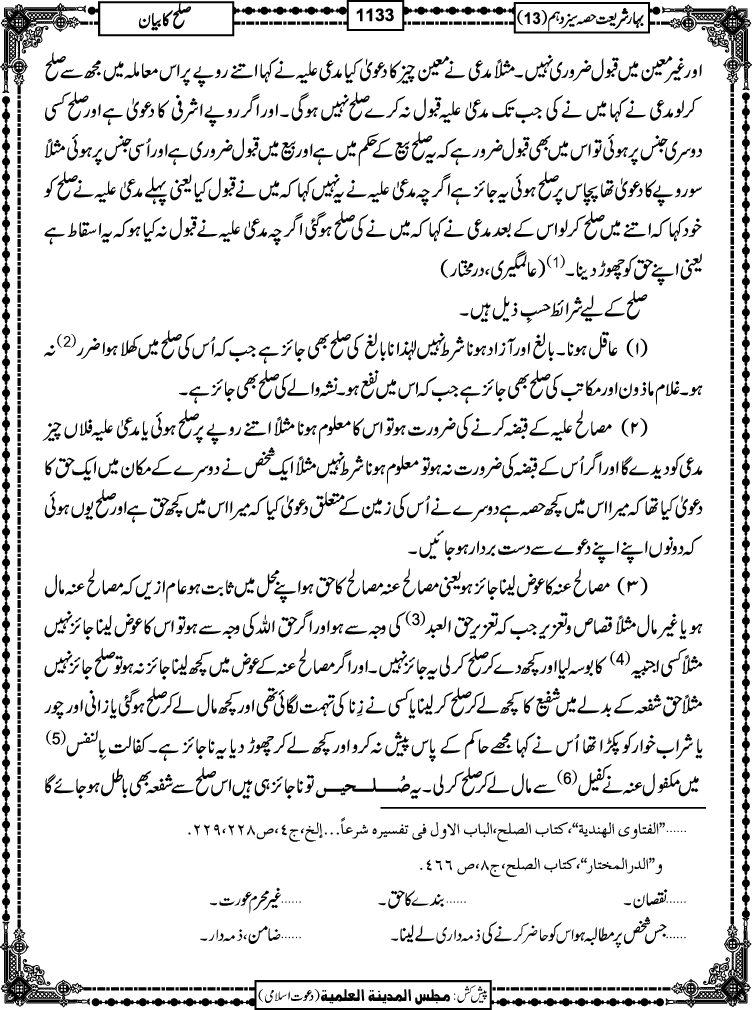 بہار شریعت حصہ سیزدہم (13)
1133
صلح کا بیان
اور غیر معین میں قبول ضروری نہیں۔ مثلاً مدعی نے معین چیز کا دعویٰ کیا مدعیٰ علیہ نے کہا اتنے روپے پر اس معاملہ میں مجھ سے صلح
کرلو مدعی نے کہا میں نے کی جب تک مدعیٰ علیہ قبول نہ کرے صلح نہیں ہوگی۔ اور اگر روپے اشرفی کا دعویٰ ہے اور صلح کسی
دوسری جنس پر ہوئی تو اس میں بھی قبول ضرور ہے کہ یہ صلح بیع کے حکم میں ہے اور بیع میں قبول ضروری ہے اور اُسی جنس پر ہوئی مثلاً
سو روپے کا دعویٰ تھا پچاس پر صلح ہوئی یہ جائز ہے اگرچہ مدعیٰ علیہ نے یہ نہیں کہا کہ میں نے قبول کیا یعنی پہلے مدعیٰ علیہ نے صلح کو
خود کہا کہ اتنے میں صلح کرلو اس کے بعد مدعی نے کہا کہ میں نے کی صلح ہوگئی اگرچہ مدعیٰ علیہ نے قبول نہ کیا ہو کہ یہ اسقاط ہے
یعنی اپنے حق کو چھوڑ دینا۔(1) (عالمگیری، درمختار)
صلح کے لیے شرائط حسبِ ذیل ہیں۔
(۱) عاقل ہونا۔ بالغ اور آزاد ہونا شرط نہیں لہٰذا نابالغ کی صلح بھی جائز ہے جب کہ اُس کی صلح میں کھلا ہوا ضرر(2) نہ
ہو۔ غلام ماذون اور مکاتب کی صلح بھی جائز ہے جب کہ اس میں نفع ہو۔ نشہ والے کی صلح بھی جائز ہے۔
(۲) مصالح علیہ کے قبضہ کرنے کی ضرورت ہو تو اس کا معلوم ہونا مثلاً اتنے روپے پر صلح ہوئی یا مدعیٰ علیہ فلاں چیز
مدعی کو دیدے گا اور اگر اُس کے قبضہ کی ضرورت نہ ہو تو معلوم ہونا شرط نہیں مثلاً ایک شخص نے دوسرے کے مکان میں ایک حق کا
دعویٰ کیا تھا کہ میرا اس میں کچھ حصہ ہے دوسرے نے اُس کی زمین کے متعلق دعویٰ کیا کہ میرا اس میں کچھ حق ہے اور صلح یوں ہوئی
کہ دونوں اپنے اپنے دعوے سے دست بردار ہوجائیں۔
(۳) مصالح عنہ کا عوض لینا جائز ہو یعنی مصالح عنہ مصالح کا حق ہو اپنے محل میں ثابت ہو عام ازیں کہ مصالح عنہ مال
ہو یا غیر مال مثلاً قصاص و تعزیر جب کہ تعزیر حق العبد(3) کی وجہ سے ہو اور اگر حق اللہ کی وجہ سے ہو تو اس کا عوض لینا جائز نہیں
مثلاً کسی اجنبیہ(4) کا بوسہ لیا اور کچھ دے کر صلح کرلی یہ جائز نہیں۔ اور اگر مصالح عنہ کے عوض میں کچھ لینا جائز نہ ہو تو صلح جائز نہیں
مثلاً حق شفعہ کے بدلے میں شفیع کا کچھ لے کر صلح کرلینا یا کسی نے زِنا کی تہمت لگائی تھی اور کچھ مال لے کر صلح ہوگئی یا زانی اور چور
یا شراب خوار کو پکڑا تھا اُس نے کہا مجھے حاکم کے پاس پیش نہ کرو اور کچھ لے کر چھوڑ دیا یہ ناجائز ہے۔ کفالت بِالنفس(5)
میں مکفول عنہ نے کفیل(6) سے مال لے کر صلح کرلی۔ یہ صُلحیں تو ناجائز ہی ہیں اس صلح سے شفعہ بھی باطل ہوجائے گا
......"الفتاوى الهندية"، كتاب الصلح، الباب الاول فى تفسيره شرعاً...إلخ، ج٤، ص٢٢٨، ٢٢٩.
و"الدرالمختار"، كتاب الصلح، ج٨، ص ٤٦٦.
......نقصان۔ ......بندے کا حق۔ ......غیر محرم عورت۔
......جس شخص پر مطالبہ ہو اس کو حاضر کرنے کی ذمہ داری لے لینا۔ ......ضامن، ذمہ دار۔
پیش کش: مجلس المدينة العلمية (دعوت اسلامی)